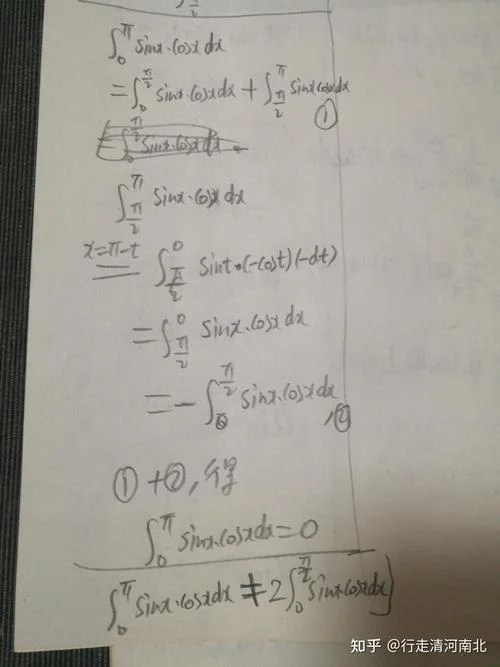 ∫₀^π sinx·cosxdx
=∫₀^{π/2} sinx·cosxdx+∫_{π/2}^π sinxcosxdx ①
=∫₀^{π/2} sinx·cosxdx
∫_{π/2}^π sinx·cosxdx
x=π-t = ∫_{π/2}^0 sint·(-cost)(-dt)
=∫_{π/2}^0 sinx·cosxdx
=-∫₀^{π/2} sinx·cosxdx,②
①+②,得
∫₀^π sinx·cosxdx=0
∫₀^π sinx·cosxdx≠2∫₀^{π/2} sinx·cosxdx]
知乎 @行走清河南北